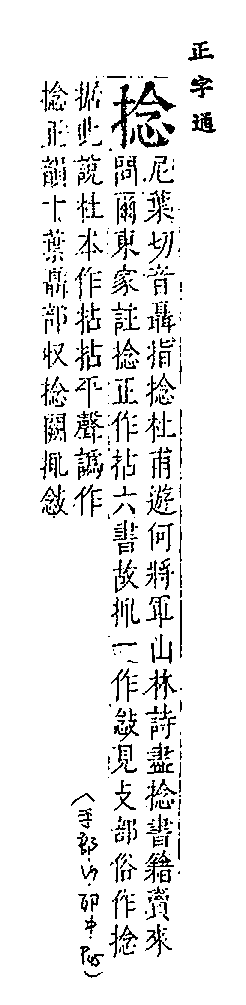 正字通
捻
尼葉切音聶指捻杜甫遊何將軍山林詩盡捻書籍賣來
問爾東家註捻正作拈六書故一作敜見攴部俗作捻
据此說杜本作拈拈平聲譌作
捻正韻十葉聶部収捻闕敜
(手部 卯中 P45)